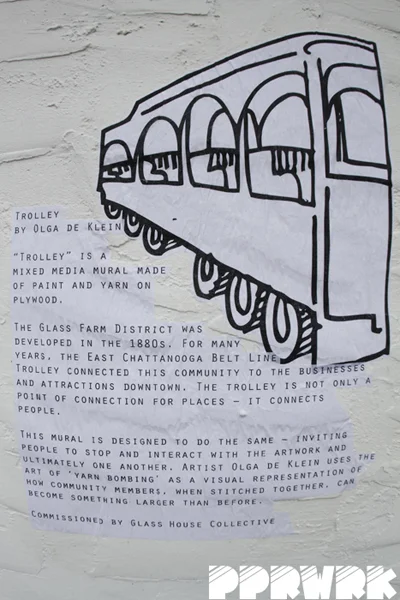 TROLLEY
BY OLGA DE KLEIN
"TROLLEY" IS A
MIXED MEDIA MURAL MADE
OF PAINT AND YARN ON
PLYWOOD.
THE GLASS FARM DISTRICT WAS
DEVELOPED IN THE 1880S. FOR MANY
YEARS, THE EAST CHATTANOOGA BELT LINE
TROLLEY CONNECTED THIS COMMUNITY TO THE BUSINESSES
AND ATTRACTIONS DOWNTOWN. THE TROLLEY IS NOT ONLY A
POINT OF CONNECTION FOR PLACES – IT CONNECTS
PEOPLE.
THIS MURAL IS DESIGNED TO DO THE SAME – INVITING
PEOPLE TO STOP AND INTERACT WITH THE ARTWORK AND
ULTIMATELY ONE ANOTHER. ARTIST OLGA DE KLEIN USES THE
ART OF 'YARN BOMBING' AS A VISUAL REPRESENTATION OF
HOW COMMUNITY MEMBERS, WHEN STITCHED TOGETHER, CAN
BECOME SOMETHING LARGER THAN BEFORE.
COMMISSIONED BY GLASS HOUSE COLLECTIVE
PPRWRK